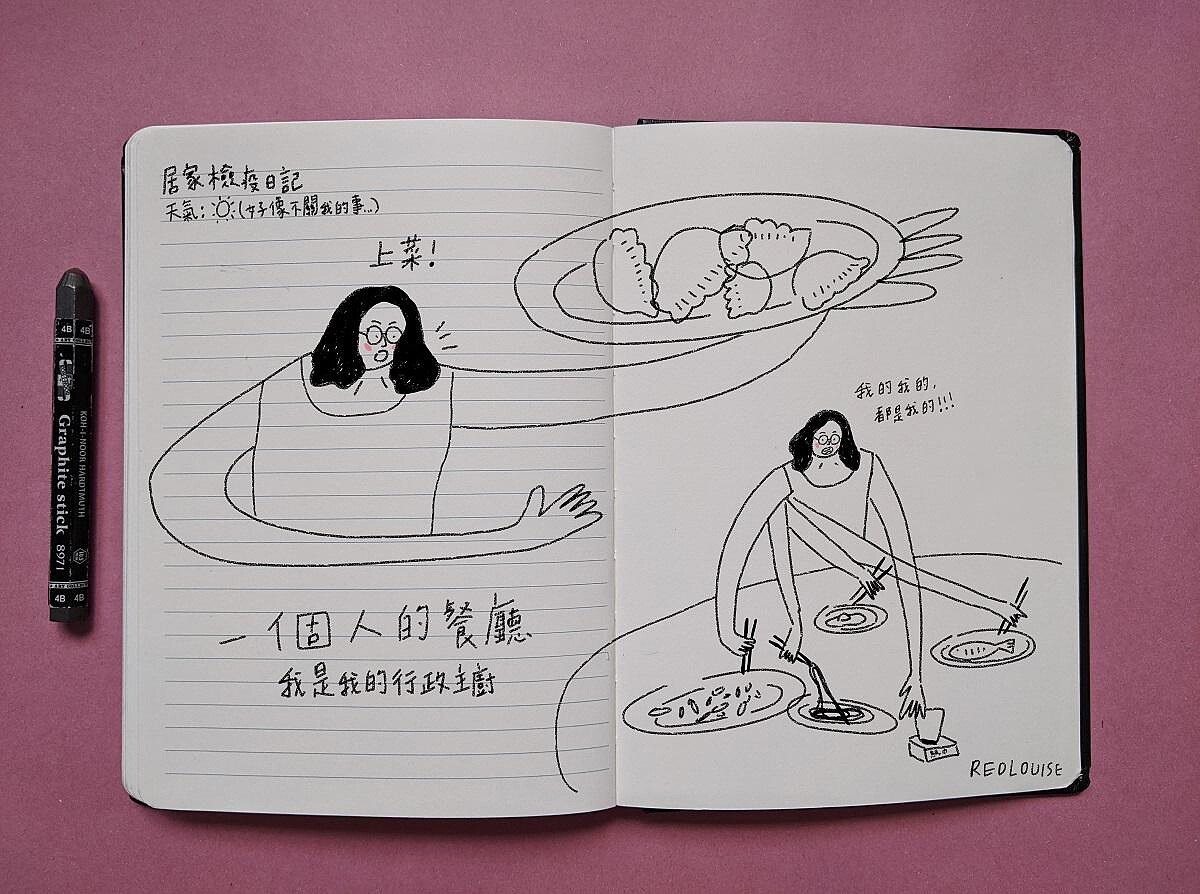 居家檢疫日記
天氣:☼(好像不關我的事...)
上菜!
一個人的餐廳
我是我的行政主廚
我的我的,
都是我的!!!
REDLOUISE
4B 4B
KOH-I-NOOR HARDTMUTH
Graphite stick 8971
4B 4B